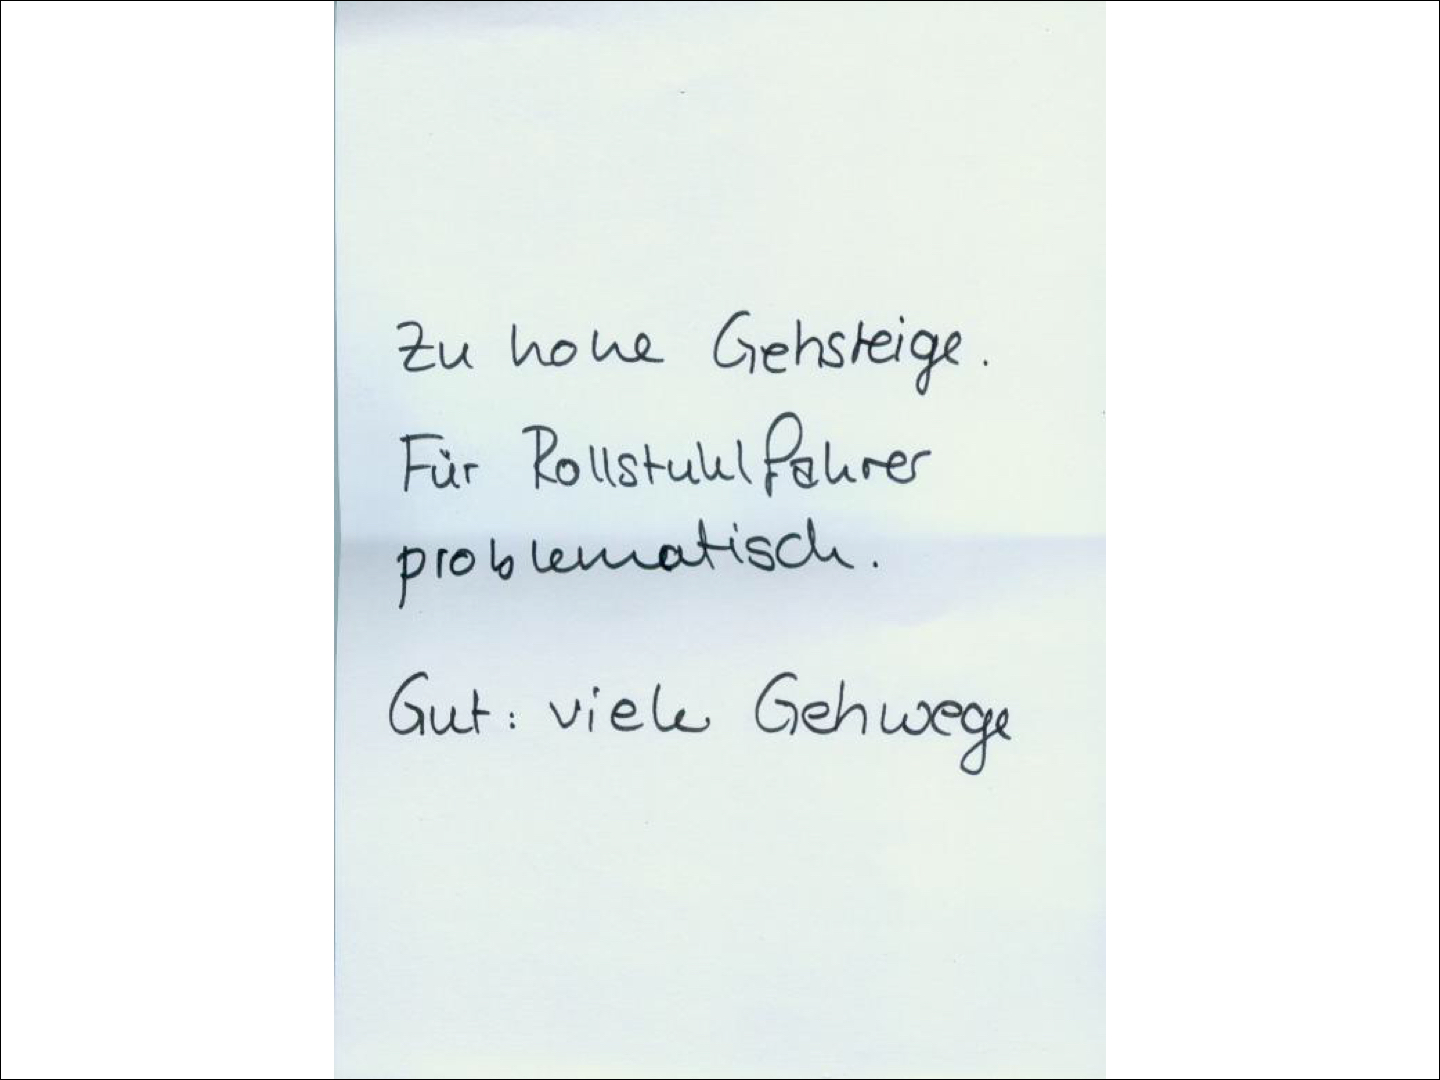 Zu hohe Gehsteige.
Für Rollstuhlfahrer
problematisch.
Gut: viele Gehwege